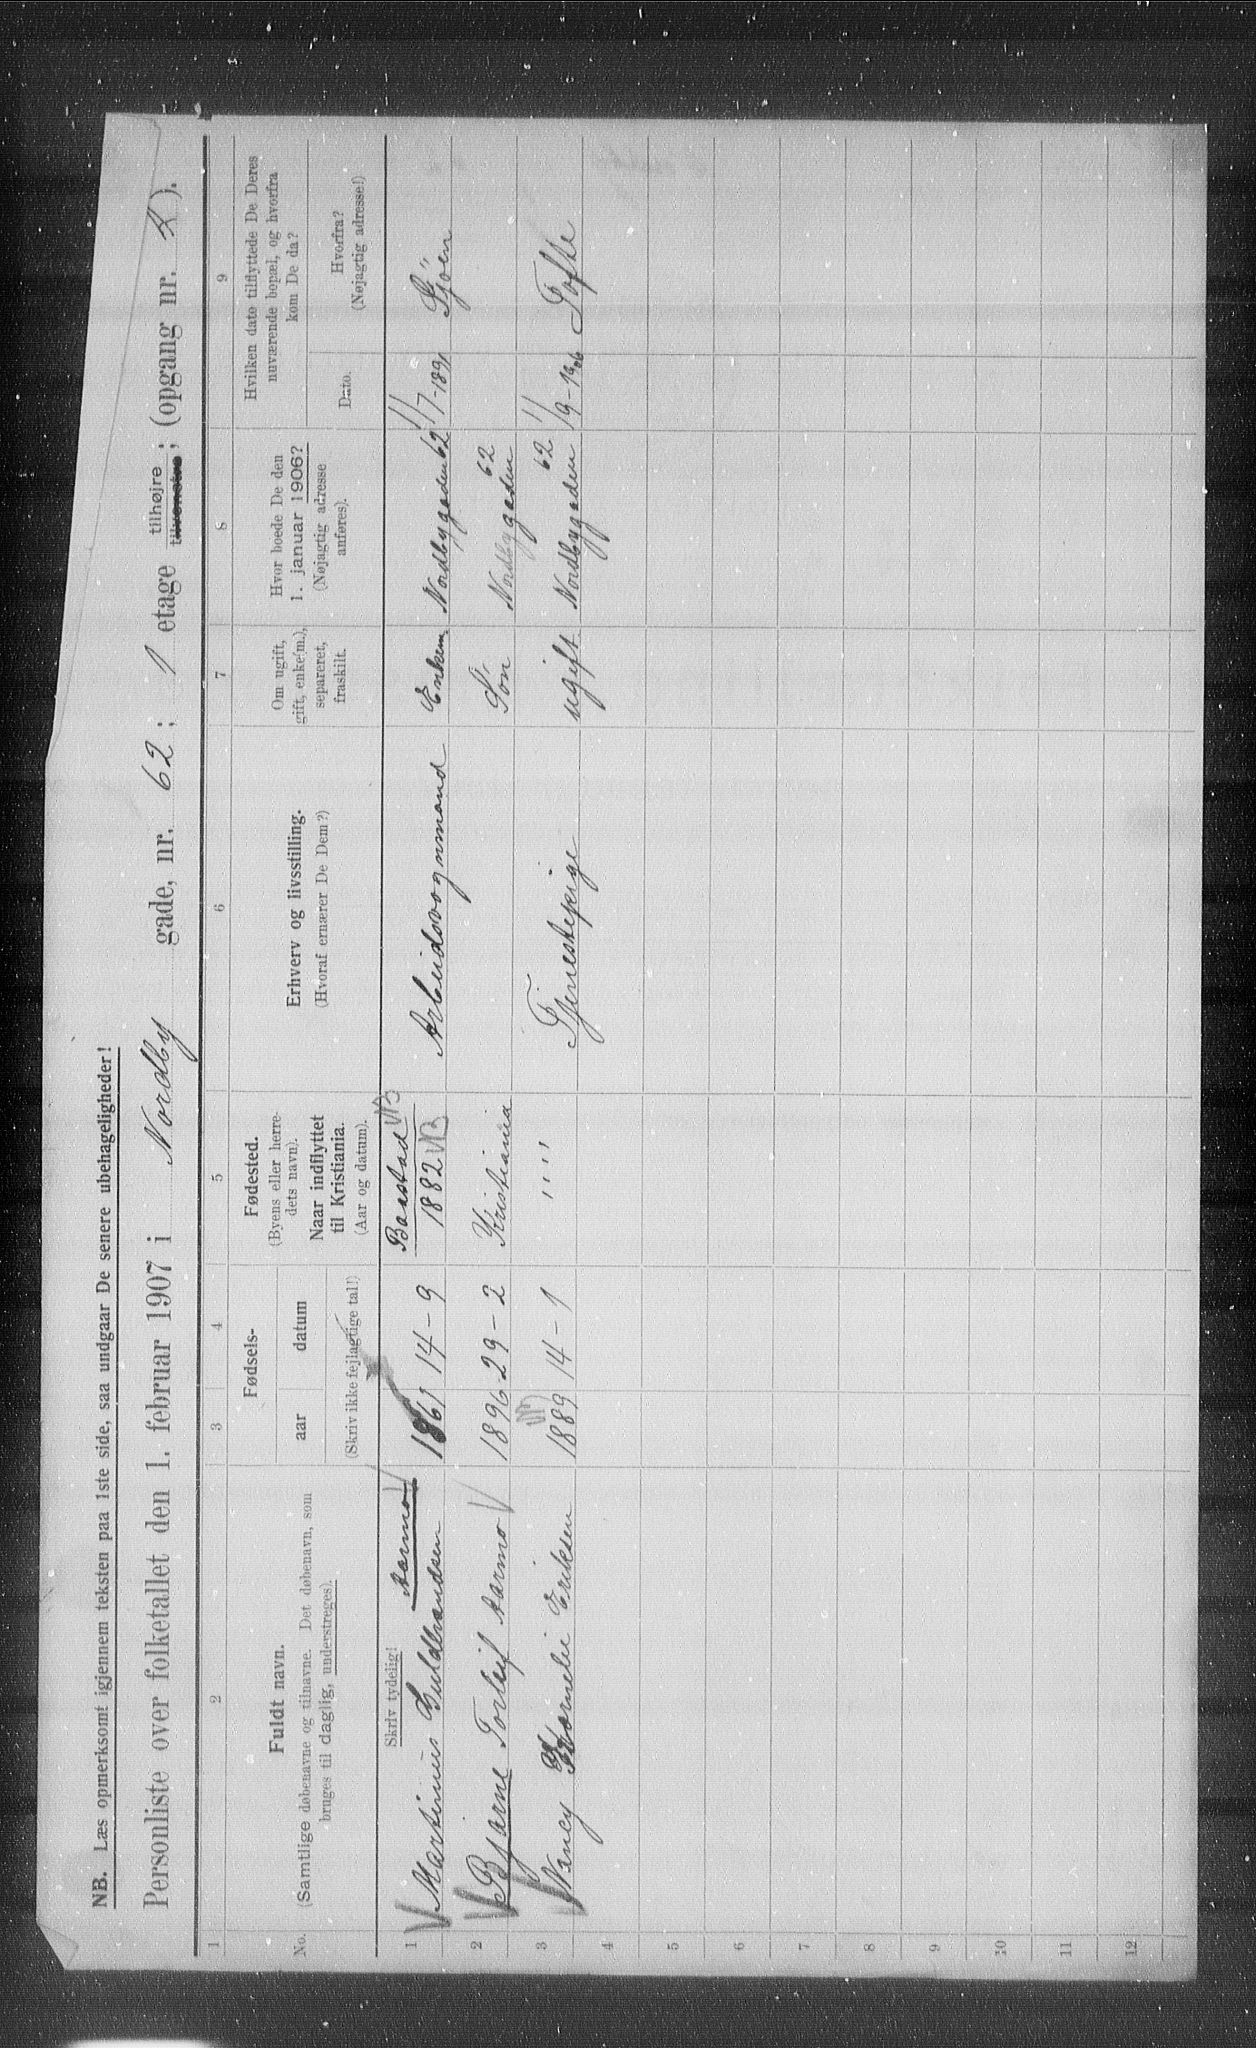 NB. Læs opmerksomt igjennem teksten paa 1ste side, saa undgaar De senere ubehageligheder!
Personliste over folketallet den 1. februar 1907 i Nordby gade, nr. 62; 1 etage tilhøjre tilvenstre; (opgang nr. ).
1 2 3 4 5 6 7 8 9
No.
Fuldt navn.
(Samtlige døbenavne og tilnavne. Det døbenavn, som
bruges til daglig, understreges).
Fødsels-
aar datum
(Skriv ikke fejlagtige tal!)
Fødested.
(Byens eller herre-
dets navn).
Naar indflyttet
til Kristiania.
(Aar og datum).
Erhverv og livsstilling.
(Hvoraf ernærer De Dem?)
Om ugift,
gift, enke(m.),
separeret,
fraskilt.
Hvor boede De den
1. januar 1906?
(Nøjagtig adresse
anføres).
Hvilken dato tilflyttede De Deres
nuværende bopæl, og hvorfra
kom De da?
Dato.
Hvorfra?
(Nøjagtig adresse!)
Skriv tydelig!
1 Martinius Guldbrandsen Aarmo 1861 14-9 Baastad 1882 Arbeidsvognmand Enkem. Nordbygaden 62 1/7-1891 Sjöen
2 Bjarne Torleif Aarmo 1896 29-2 Kristiania Sön Nordbygaden 62
3 Nancy Kornelie Eriksen 1889 14-1 " " Tjenestepige ugift Nordbygaden 62 1/9-1906 Tofte
4
5
6
7
8
9
10
11
12